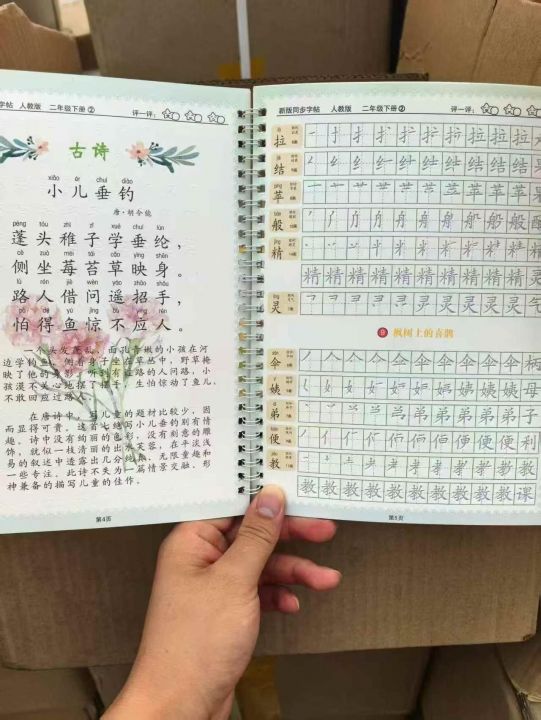 字帖 人教版 二年级下册② 评一评:
古诗
xiǎo ér chuí diào
小儿垂钓
唐·胡令能
péng tóu zhì zǐ xué chuí lún
蓬头稚子学垂纶,
cè zuò méi tái cǎo yìng shēn
侧坐莓苔草映身。
lù rén jiè wèn yáo zhāo shǒu
路人借问遥招手,
pà dé yú jīng bú yìng rén
怕得鱼惊不应人。
一个头发蓬乱、面孔青嫩的小孩在河
边学钓鱼,侧着身子坐在草丛中,野草掩
映了他的身影。听到有过路的人问路,小
孩漠不关心地摆了摆手,生怕惊动了鱼儿,
不敢回应过路人。
在唐诗中,写儿童的题材比较少,因
而显得可贵。这首七绝写小儿垂钓别有情
趣。诗中没有绚丽的色彩,没有刻意的雕
饰,就似一枝清丽的出水芙蓉,在平淡浅
易的叙述中透露出几分纯真、无限童趣和
一些专注。此诗不失为一篇情景交融、形
神兼备的描写儿童的佳作。
第4页
新版同步字帖 人教版 二年级下册② 评一评:
拉 拉 拉 拉
结 结 结 结 结
苹 苹 苹 苹
般 舟 般 般 般
精 精 精
精 精 精 精 精 精 精 精
灵 灵 灵 灵 灵 气
9 枫树上的喜鹊
伞 伞 伞 伞 伞 柄
姨 姨 姨 姨 姨
弟 弟 弟 弟 弟 子
便 便 便 便 便 利
教 教 教
教 教 教 教 教 教 教 教 教 课
第5页